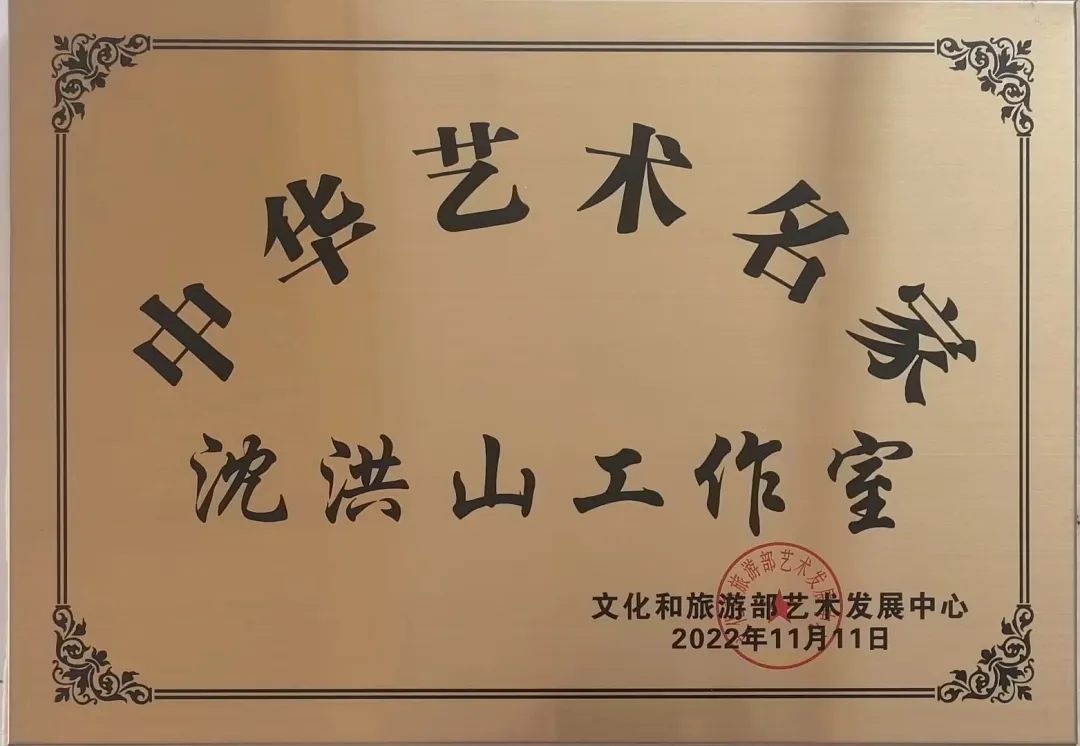 中华艺术名家
沈洪山工作室
文化和旅游部艺术发展中心
2022年11月11日